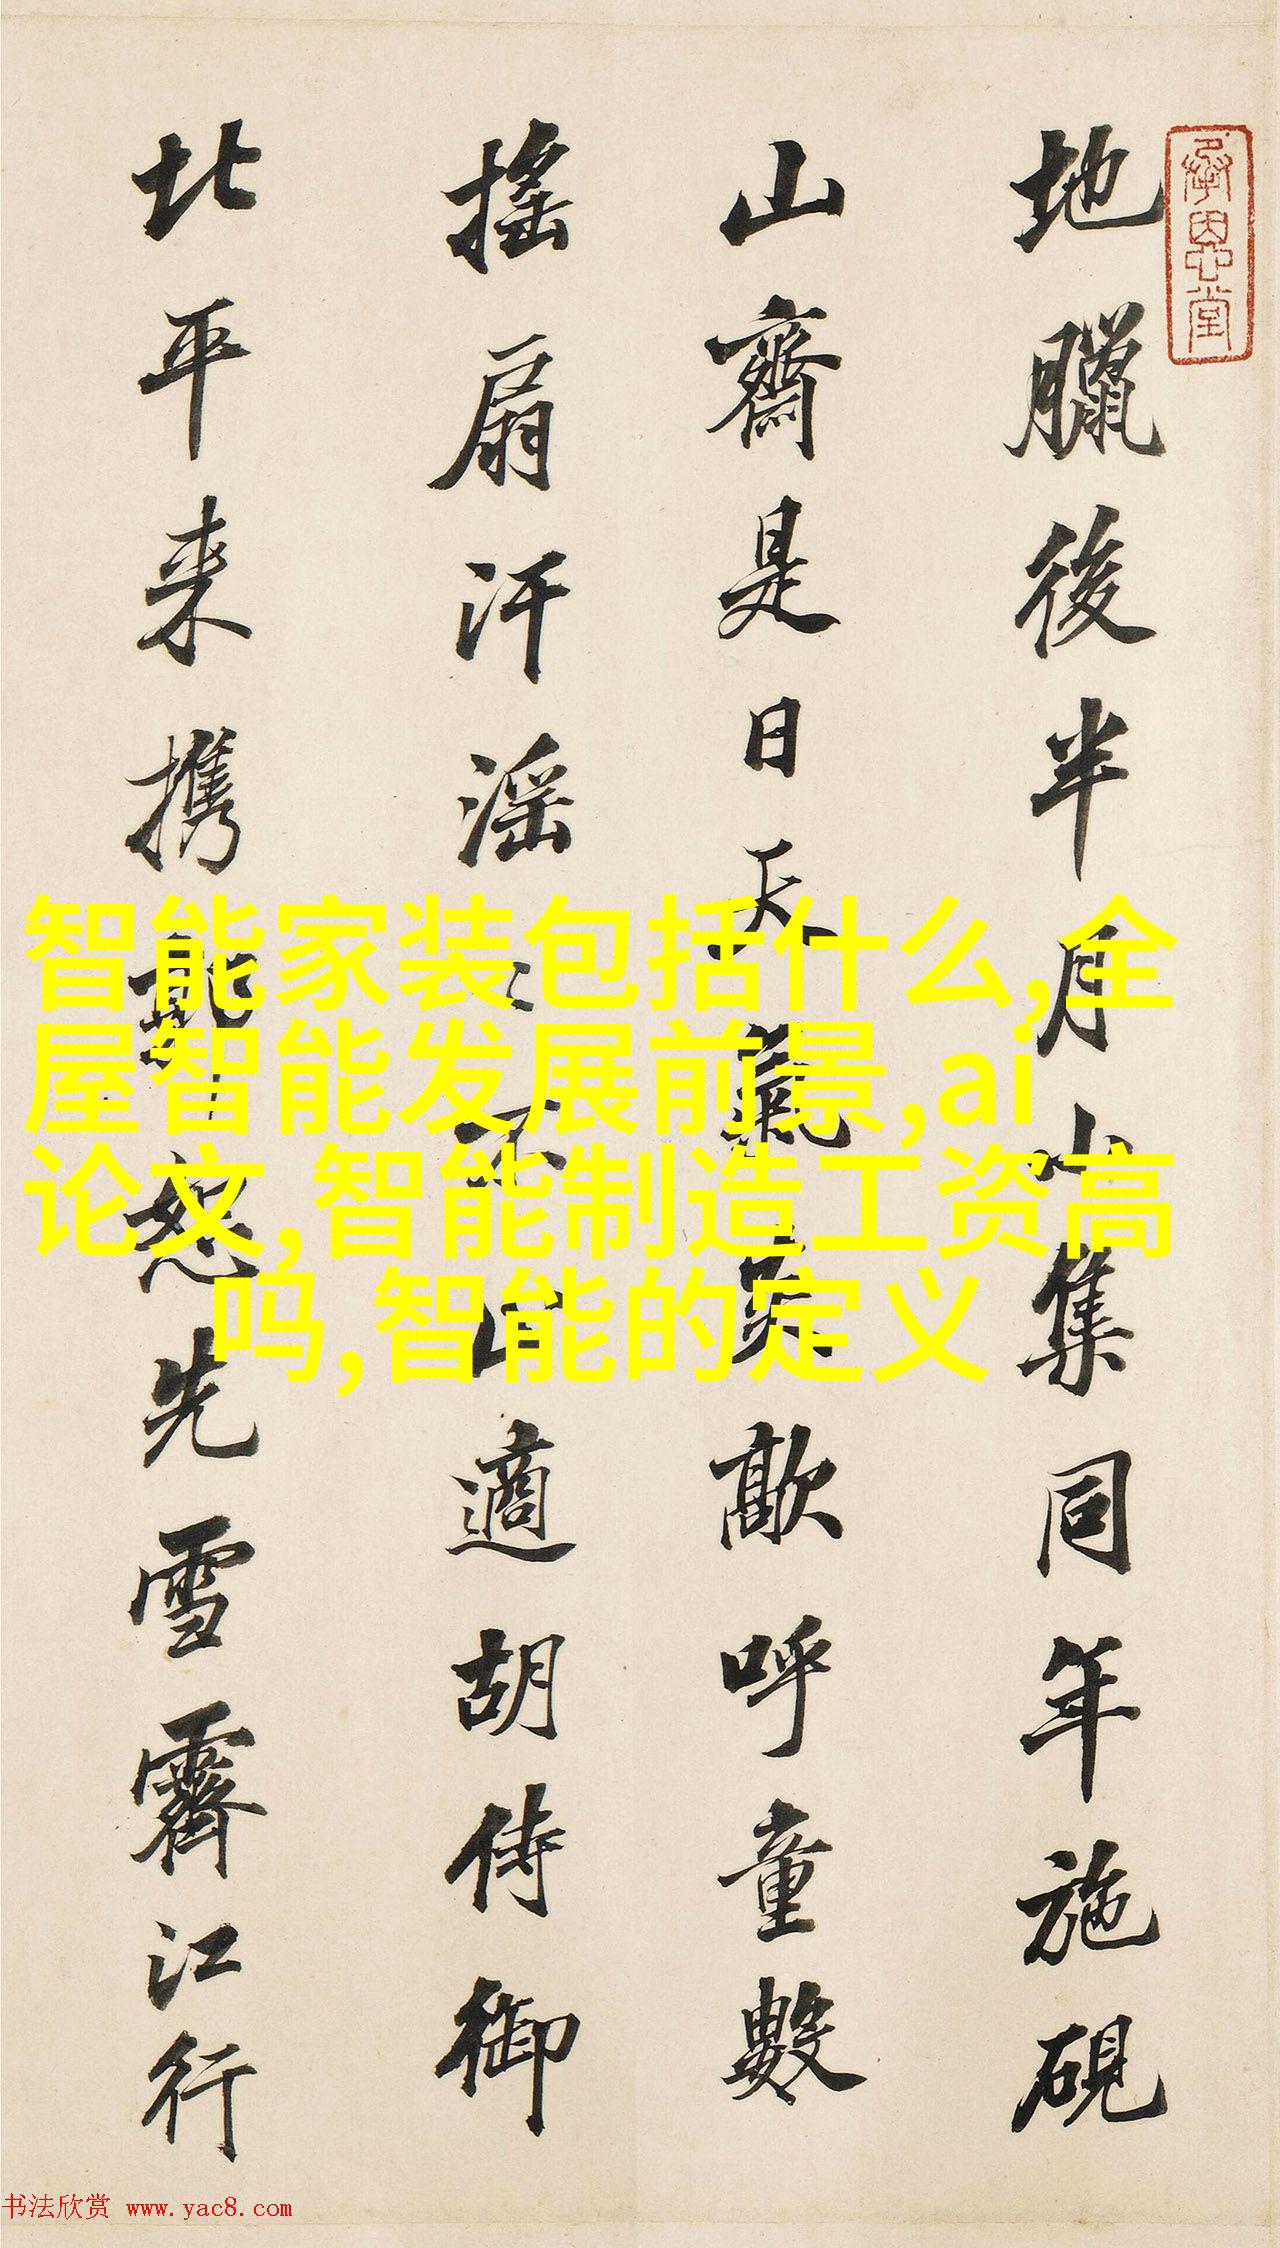 承恩堂
地臘後半月小集同年施硯
山齋是日天氣炎歊呼童數
搖扇汗滛〻不止適胡侍御
北平来携 恕先雪霽江行
智能家装包括什么,全
屋智能发展前景,ai
论文,智能制造工资高
吗,智能的定义
书法欣赏 www.yac8.com